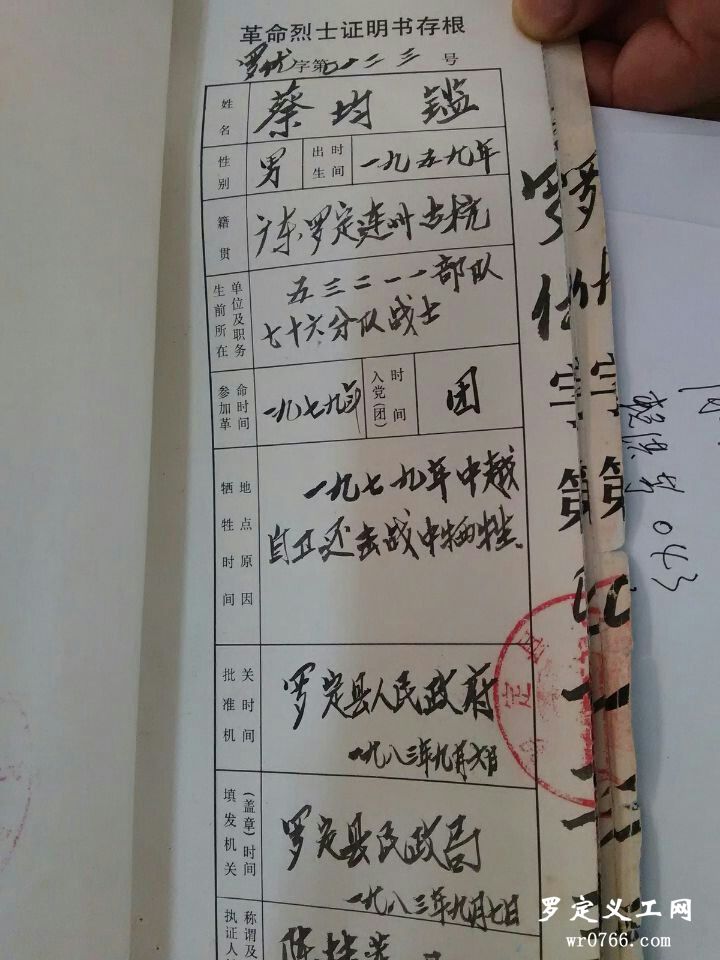 革命烈士证明书存根
罗优字第〇一二三号
姓名
蔡均鑑
性别
男
出生时间
一九五九年
籍贯
广东罗定连州古杭
生前所在单位及职务
五三二一一部队
七十六分队战士
参加革命时间
一九七九年
入党(团)时间
团
牺牲时间地点原因
一九七九年中越
自卫还击战中牺牲.
批准机关时间
罗定县人民政府
一九八三年九月六日
填发机关(盖章)时间
罗定县民政局
一九八三年九月七日
执证人称谓及
陈
罗
优
字
第
罗定义工网
wr0766.com